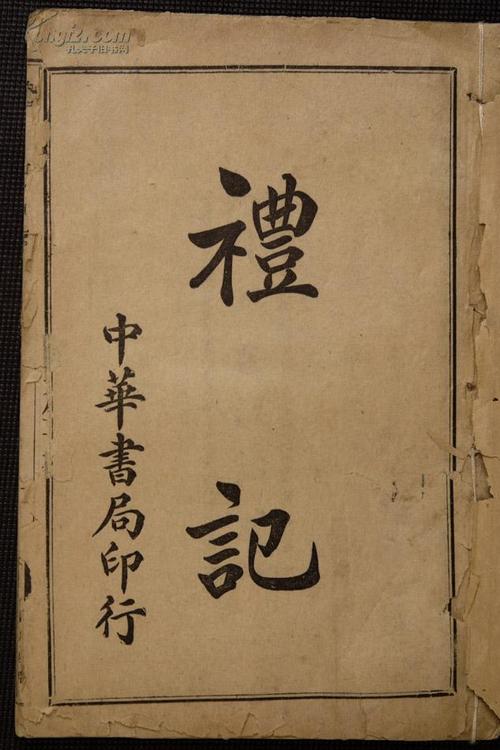 禮記
中華書局印行
孔夫子旧书网